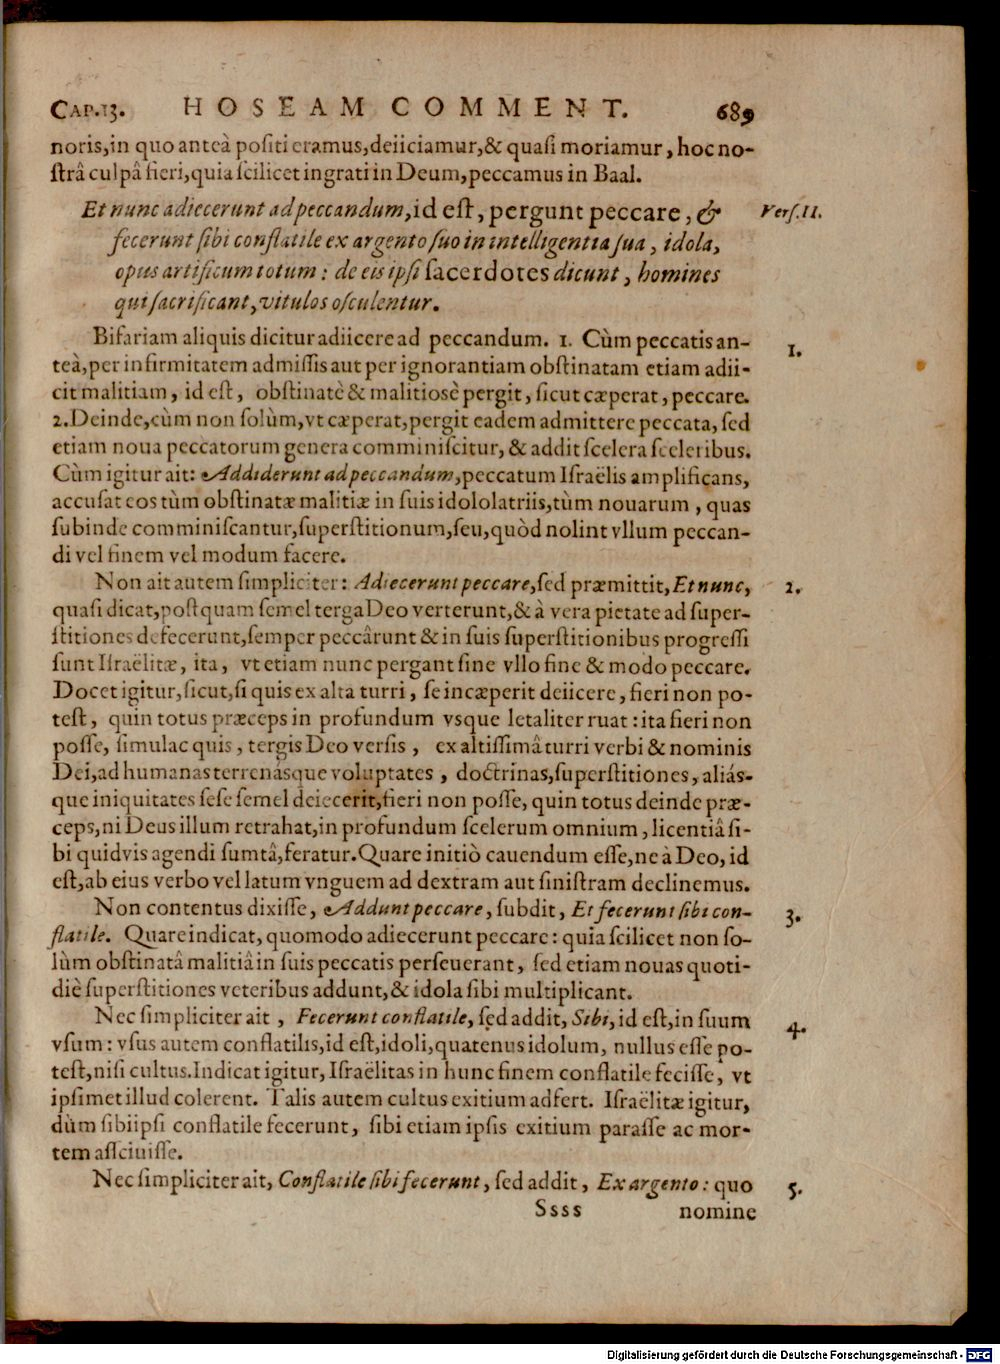 CAP. 13. HOSEAM COMMENT. 689
noris, in quo anteà positi eramus, deiiciamur, & quasi moriamur, hoc no-
strâ culpâ fieri, quia scilicet ingrati in Deum, peccamus in Baal.
Et nunc adiecerunt ad peccandum, id est, pergunt peccare, & Vers. 11.
fecerunt sibi conflatile ex argento suo in intelligentia sua, idola,
opus artificum totum: de eis ipsi sacerdotes dicunt, homines
qui sacrificant, vitulos osculentur.
Bifariam aliquis dicitur adiicere ad peccandum. 1. Cùm peccatis an- 1.
teà, per infirmitatem admissis aut per ignorantiam obstinatam etiam adii-
cit malitiam, id est, obstinatè & malitiosè pergit, sicut cæperat, peccare.
2. Deinde, cùm non solùm, vt cæperat, pergit eadem admittere peccata, sed
etiam noua peccatorum genera comminiscitur, & addit scelera sceleribus.
Cùm igitur ait: Addiderunt ad peccandum, peccatum Israëlis amplificans,
accusat eos tùm obstinatæ malitiæ in suis idololatriis, tùm nouarum, quas
subinde comminiscantur, superstitionum, seu, quòd nolint vllum peccan-
di vel finem vel modum facere.
Non ait autem simpliciter: Adiecerunt peccare, sed præmittit, Et nunc, 2.
quasi dicat, postquam semel terga Deo verterunt, & à vera pietate ad super-
stitiones defecerunt, semper peccârunt & in suis superstitionibus progressi
sunt Israëlitæ, ita, vt etiam nunc pergant sine vllo fine & modo peccare.
Docet igitur, sicut, si quis ex alta turri, se incæperit deiicere, fieri non po-
test, quin totus præceps in profundum vsque letaliter ruat: ita fieri non
posse, simulac quis, tergis Deo versis, ex altissimâ turri verbi & nominis
Dei, ad humanas terrenásque voluptates, doctrinas, superstitiones, aliás-
que iniquitates sese semel deiecerit, fieri non posse, quin totus deinde præ-
ceps, ni Deus illum retrahat, in profundum scelerum omnium, licentiâ si-
bi quidvis agendi sumtâ, feratur. Quare initiò cauendum esse, ne à Deo, id
est, ab eius verbo vel latum vnguem ad dextram aut sinistram declinemus.
Non contentus dixisse, Addunt peccare, subdit, Et fecerunt sibi con- 3.
flatile. Quare indicat, quomodo adiecerunt peccare: quia scilicet non so-
lùm obstinatâ malitiâ in suis peccatis perseuerant, sed etiam nouas quoti-
diè superstitiones veteribus addunt, & idola sibi multiplicant.
Nec simpliciter ait, Fecerunt conflatile, sed addit, Sibi, id est, in suum 4.
vsum: vsus autem conflatilis, id est, idoli, quatenus idolum, nullus esse po-
test, nisi cultus. Indicat igitur, Israëlitas in hunc finem conflatile fecisse, vt
ipsimet illud colerent. Talis autem cultus exitium adfert. Israëlitæ igitur,
dùm sibi ipsi conflatile fecerunt, sibi etiam ipsis exitium parasse ac mor-
tem asciuisse.
Nec simpliciter ait, Conflatile sibi fecerunt, sed addit, Ex argento: quo 5.
Ssss nomine
Digitalisierung gefördert durch die Deutsche Forschungsgemeinschaft - DFG